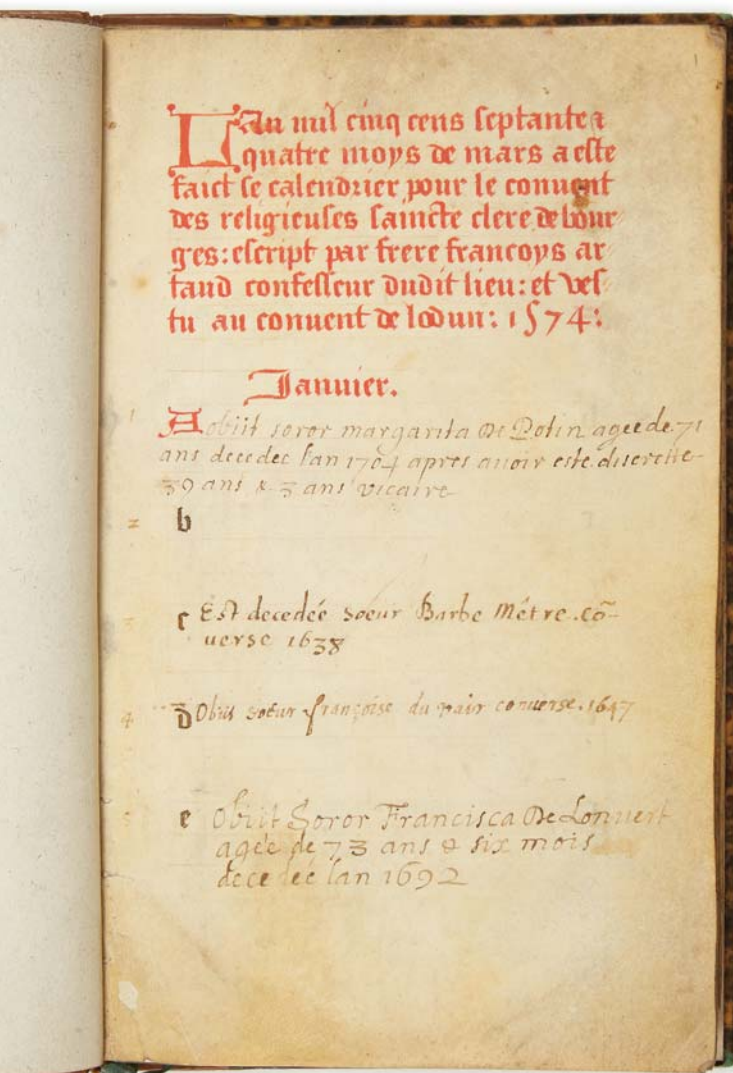 1
Lan mil cinq cens septante &
quatre moys de mars a este
faict se calendrier pour le convent
des religieuses saincte clere de bour
ges: escript par frere francoys ar
taud confesseur dudit lieu: et ves
tu au convent de lodun: 1574:
Januier.
1 A obiit soror margarita De Potin agee de 71
ans decedee lan 1704 apres auoir este discrette
39 ans & 3 ans vicaire
2 b
3 c Est decedée soeur Barbe Métre . cō-
uerse 1638
4 D Obiit soeur françoise du pair conuerse. 1647
5 e Obiit Soror Francisca De Lonuert
agée de 73 ans & six mois
decedeé lan 1692